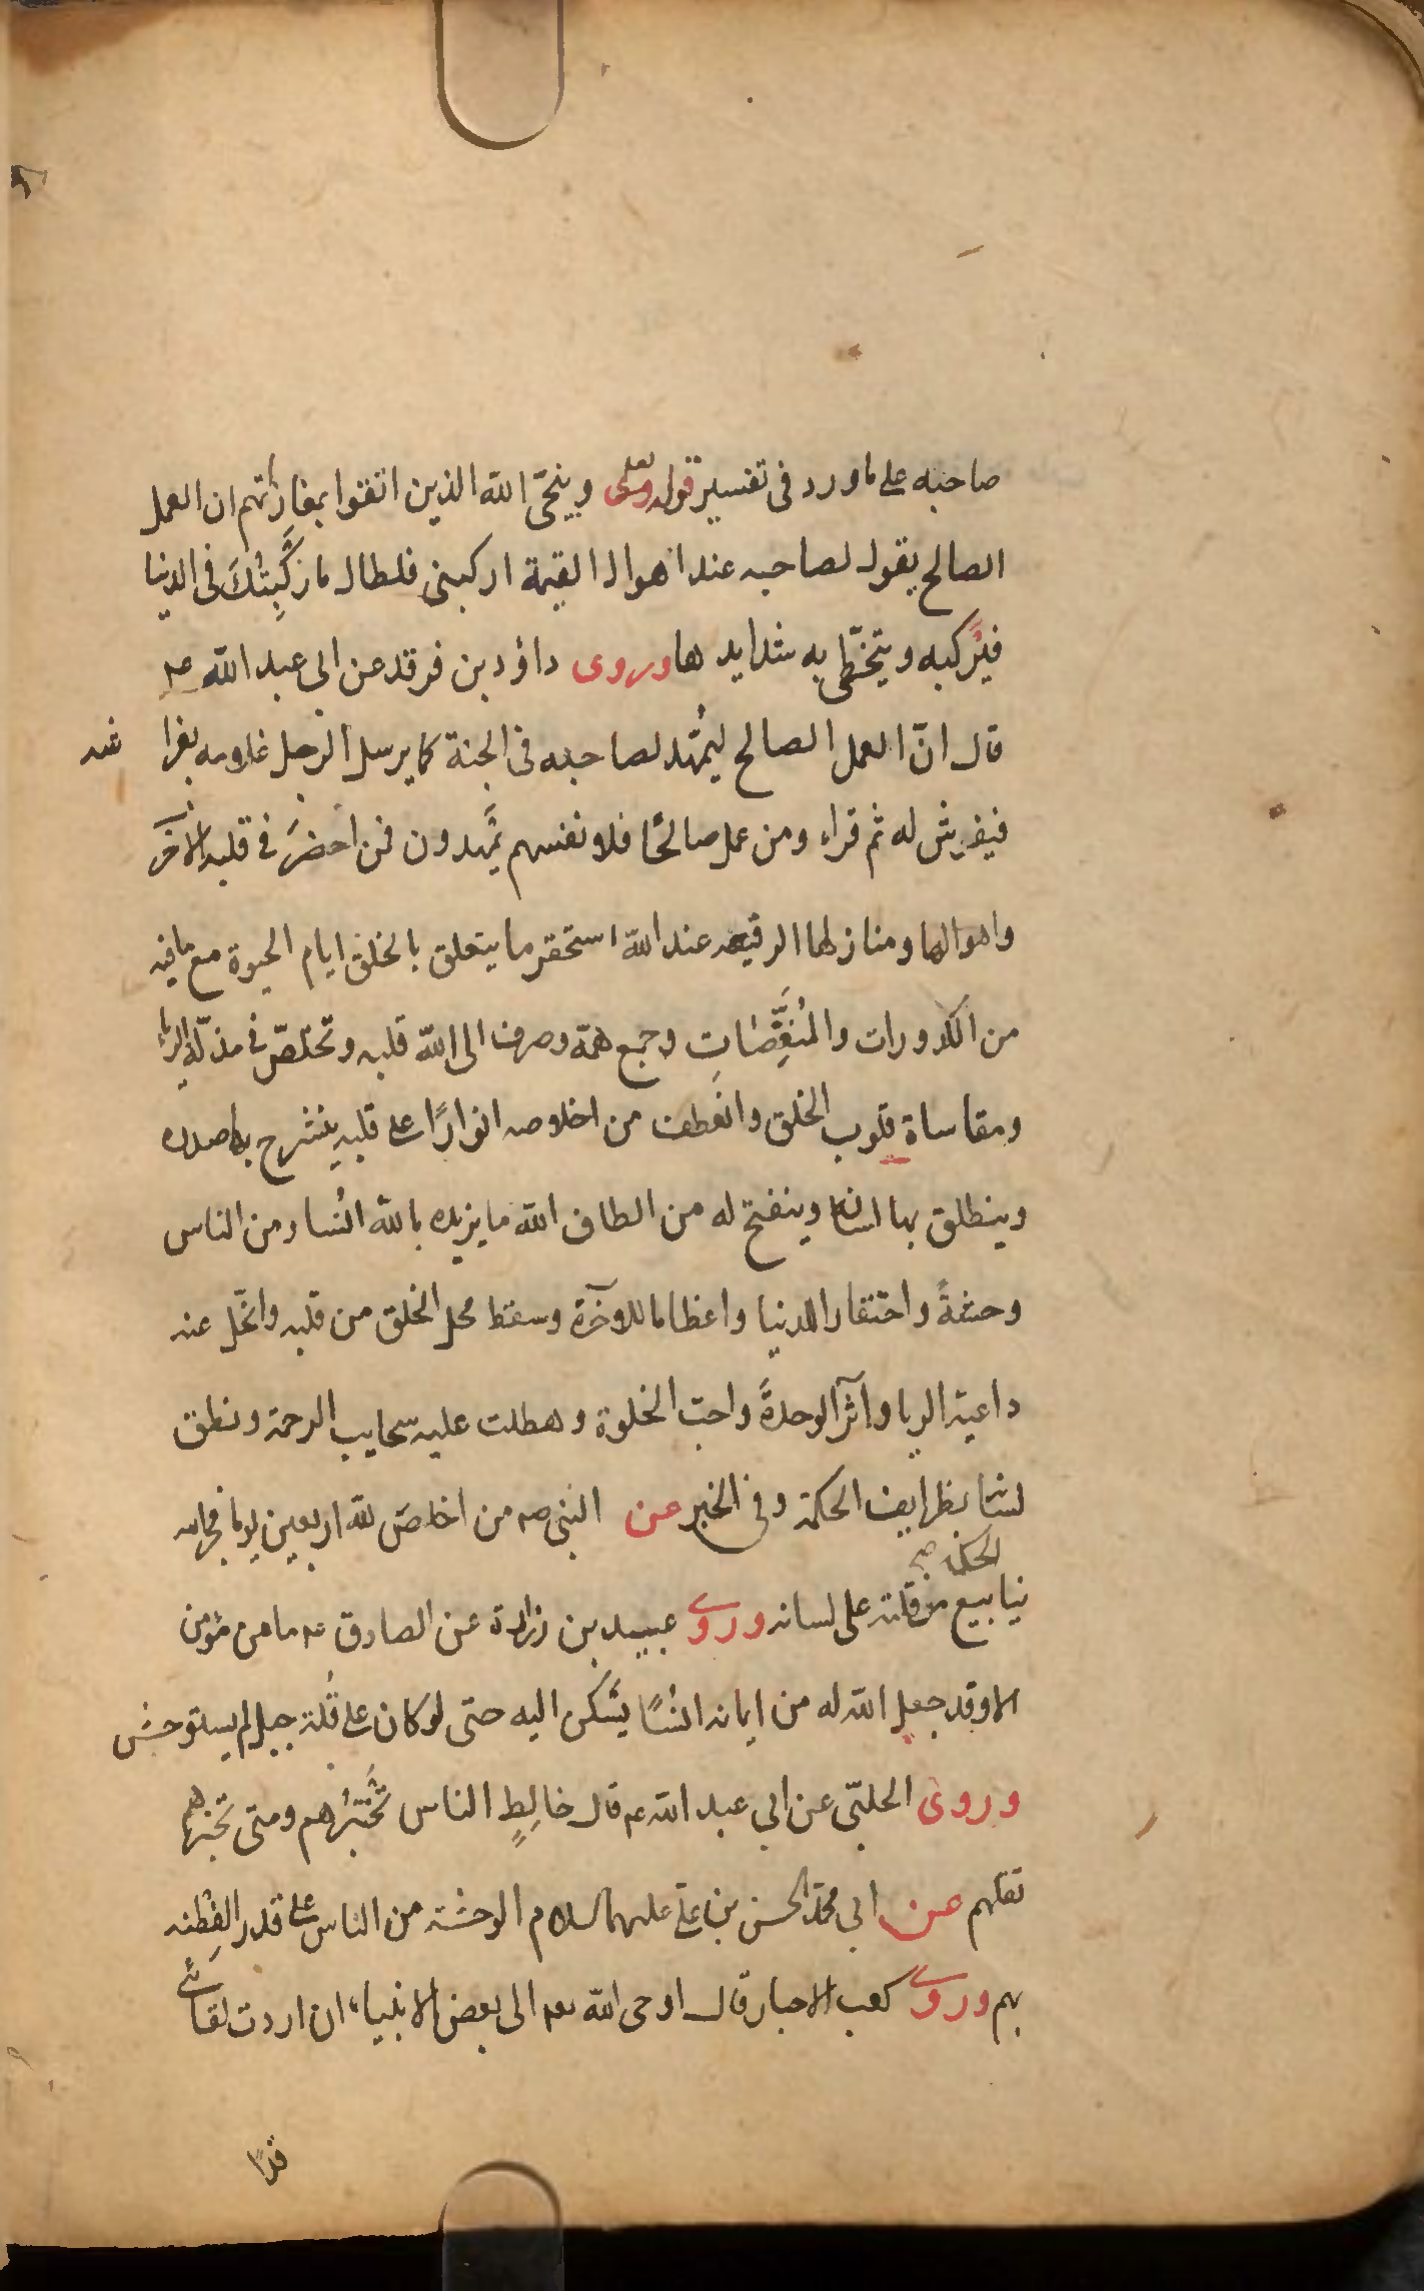 صاحبه على ما ورد فى تفسير قوله تعلى وينجّى الله الذين اتقوا بمفازتهم ان العمل
الصالح يقول لصاحبه عند اهوال القيمة اركبنى فلطال ما رَكِبْتُكَ فى الدنيا
فيَرْكبه ويتخطّى به شدايدها وروى داؤد بن فرقد عن ابى عبد الله عم
قال انّ العمل الصالح ليُمَهّد لصاحبه فى الجنة كما يرسل الرجل غلامه بفرا شه
فيفرش له ثم قراء ومن عمل صالحًا فلانفسهم يَمهدون فمن احضَرَ فى قلبه الآخرَ
واهوالها ومنازلها الرفيعه عند الله استحقر ما يتعلق بالخلق ايام الحيوة مع ما فيه
من الكدورات والمُنَغِّصَاتِ وجمع همّه وصرف الى الله قلبه وتخلّص فى مذلّة الرياء
ومقاساة قلوب الخلق وانعطف من اخلاصه انوارًا على قلبه ينشرح بها صدره
وينطلق بها لسانه وينفتح له من الطاف الله ما يزيده بالله انُسا ومن الناس
وحشةً واحتقارا للدنيا واعظاما للاخرة وسقط محل الخلق من قلبه وانحّل عنه
داعية الريا وآثر الوحدةَ واحب الخلوة وهطلت عليه سحايب الرحمة ونطق
لسانه بظرايف الحكمة وفى الخبر عن النبى ص من اخلصَ لله اربعين يوما فجر الله
الحكمة صح
ينابيع من قلبه على لسانه وروى عبيد بن زرارة عن الصادق عم ما من مؤمن
الا وقد جعل الله له من ايمانه انسًا يَسْكن اليه حتى لو كان على قُلة جبل لم يستوحش
وروى الحلبّى عن ابى عبد الله عم قال خالِطِ الناس تَخْتبرُهم ومتى تختبرهم
تقلهم عن ابى محمّد الحسن بن علىّ عليهما السلام الوحشة من الناس على قدر الفِطْنه
بهم وروى كعب الاحبار قال اوحى الله تعه الى بعض الانبياء ان اردت لقائى